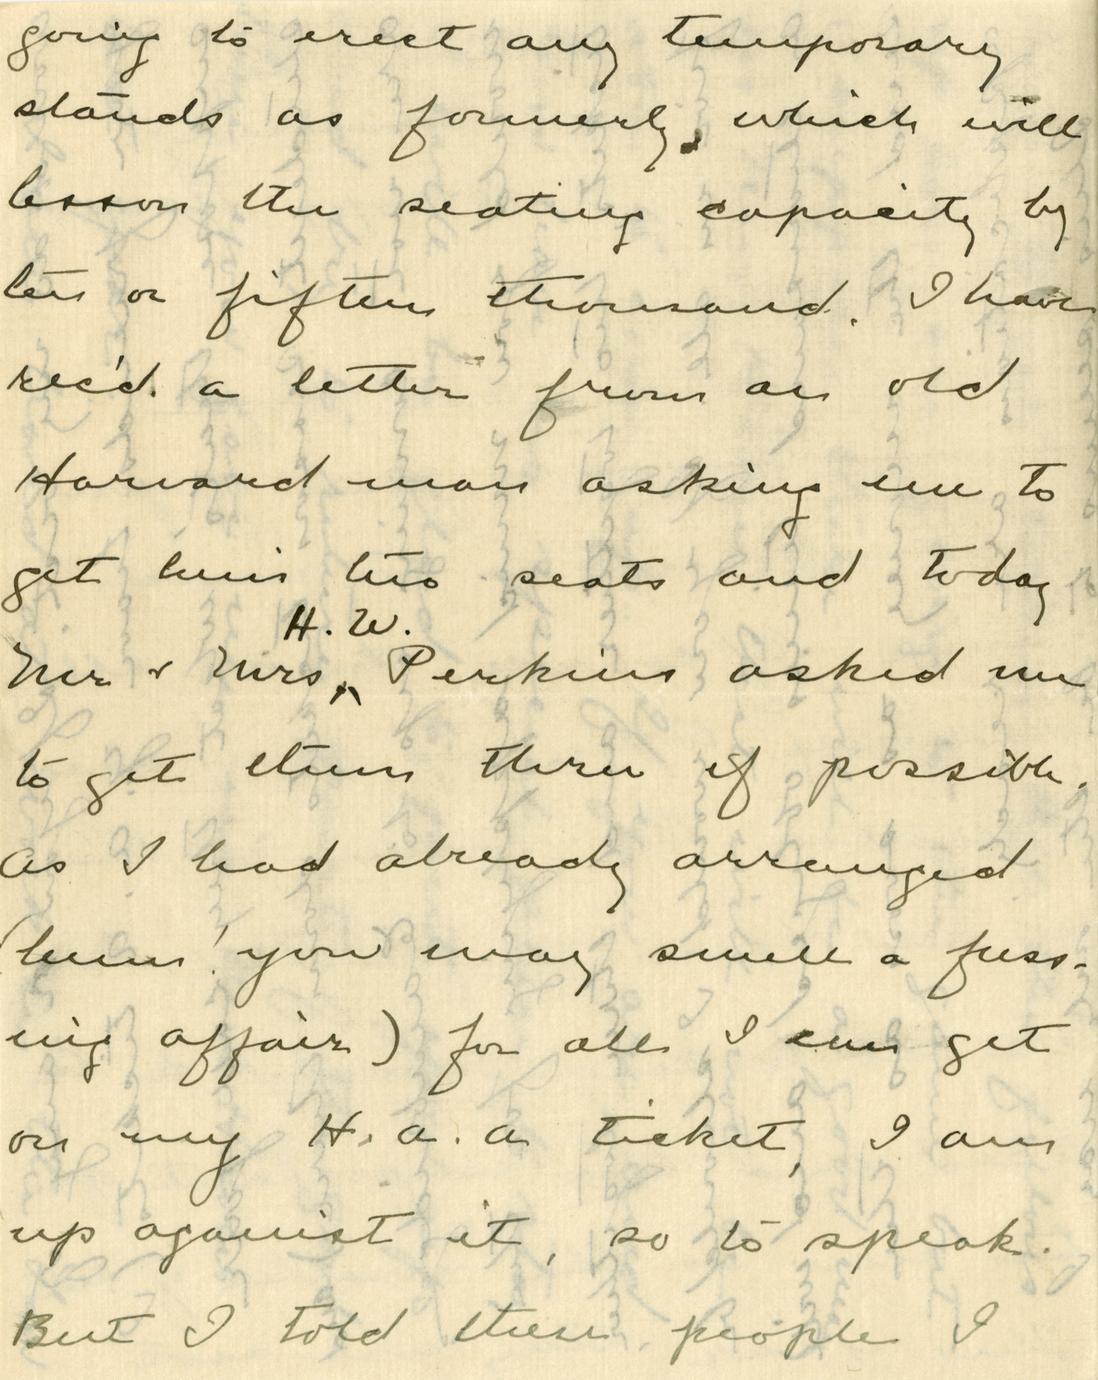 going to erect any temporary
stands as formerly, which will
lesson the seating capacity by
ten or fifteen thousand. I have
rec'd. a letter from an old
Harvard man asking me to
get him two seats and today
H. W.
Mr & Mrs ^ Perkins asked me
to get them three if possible.
As I had already arranged
(hum! you may smell a fuss-
ing affair) for all I can get
on my H. A. A. ticket, I am
up against it, so to speak.
But I told these people I